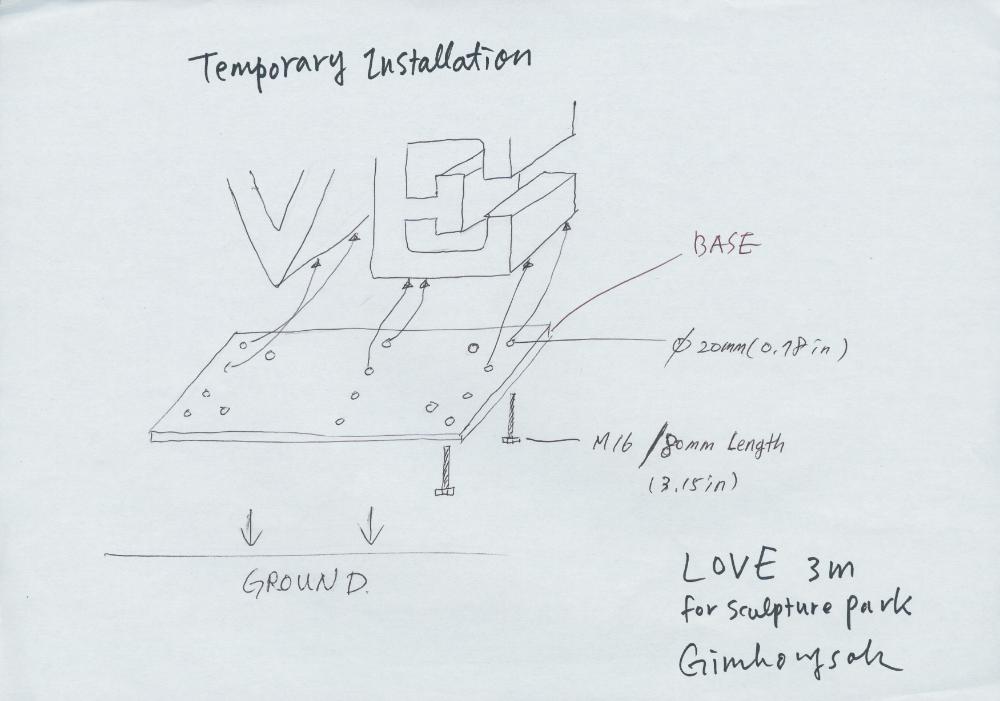 Temporary Installation
VE
BASE
ø 20mm(0.78in)
M16 / 80mm Length
(3.15in)
GROUND.
LOVE 3m
for sculpture park
Gimhongsok